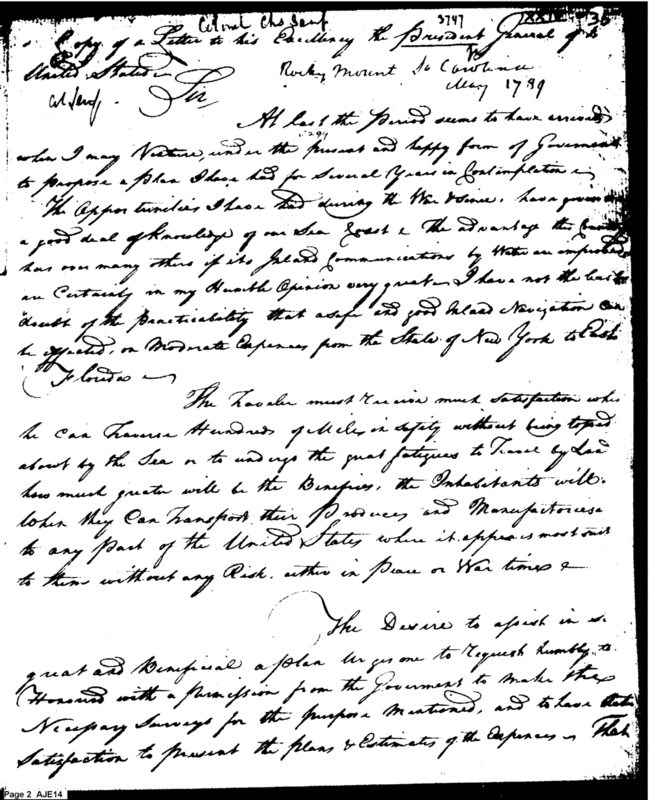 Colonel Chs Senf
3747
XXIV 36
Copy of a Letter to his Excellency the President General of the
United States
Rocky Mount So Carolina
May 1789
Col Senf.
Sir
At last the Period seems to have arrived
when I may Venture, under the present and happy form of Government
to propose a plan I have had for Several Years in Contemplation
The Opportunities I have had during the War & since, have given
a good deal of Knowledge of our Sea Coast & the advantage this Country
has over many others if its Inland Communications by Water are improved
are Certainly in my Humble Opinion very great I have not the least
doubt of the practicability that a safe and good Inland Navigation Can
be effected, on Moderate Expences from the State of New York to East
Florida
The Traveler must receive much Satisfaction when
he can Traverse Hundreds of Miles in safety without being tossed
about by the Sea or to undergo the great fatigues to Travel by Land
how much greater will be the Benefits, the Inhabitants will.
When they Can Transport their Produces and Manufactories
to any part of the United States where it appears most
to them without any Risk. either in Peace or War times &
The Desire to assist in so
great and Beneficial a plan Urges me to Request humbly to
Honoured with a permission from the Goverment to make the
Necessary Surveys for the purpose Mentioned, and to have the
Satisfaction to present the plans & Estimates of the Expences That
Page 2 AJE14